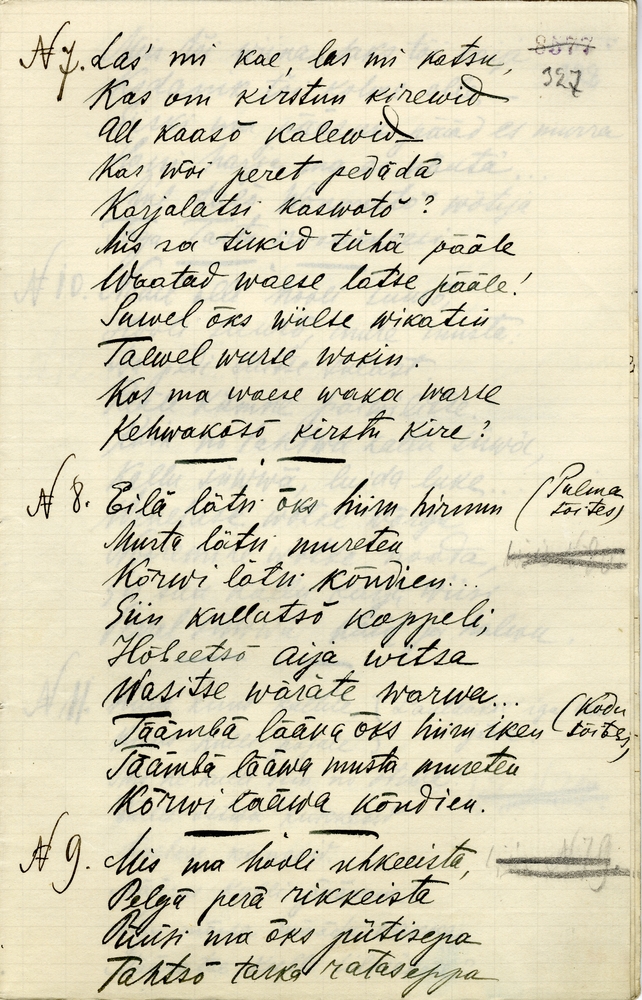 8577
327
N 7. Las' mi kae, las mi katsu,
Kas om kirstun kirewid
All kaasõ kalewid
Kas wõi peret pedädä
Karjalatsi kaswatõ?
Mis sa tükid tühä pääle
Waatad waese latse pääle!
Suwel õks wiilse wikatiu
Talwel wurse wokin.
Kas ma waese waka warse
Kehwakõsõ kirstu kire?
N 8. Eilä lätsi õks hiiru hirmun (Pulma
sõites)
Musta lätsi mureten
Kõrwi lätsi kõndien...
Siin kullatsõ koppeli,
Hõbeetsõ aija witsa
Wasitse wäräte warwa...
Täämbä lääwa õks hiiru iken (Kodu
sõites)
Täämbä lääwa musta mureten
Kõrwi lääwa kõndien.
N 9. Mis ma hooli uhkeeista,
Pelgä perä rikkeista
Püüsi ma õks pütisepa
Tahtsõ tarka rataseppa